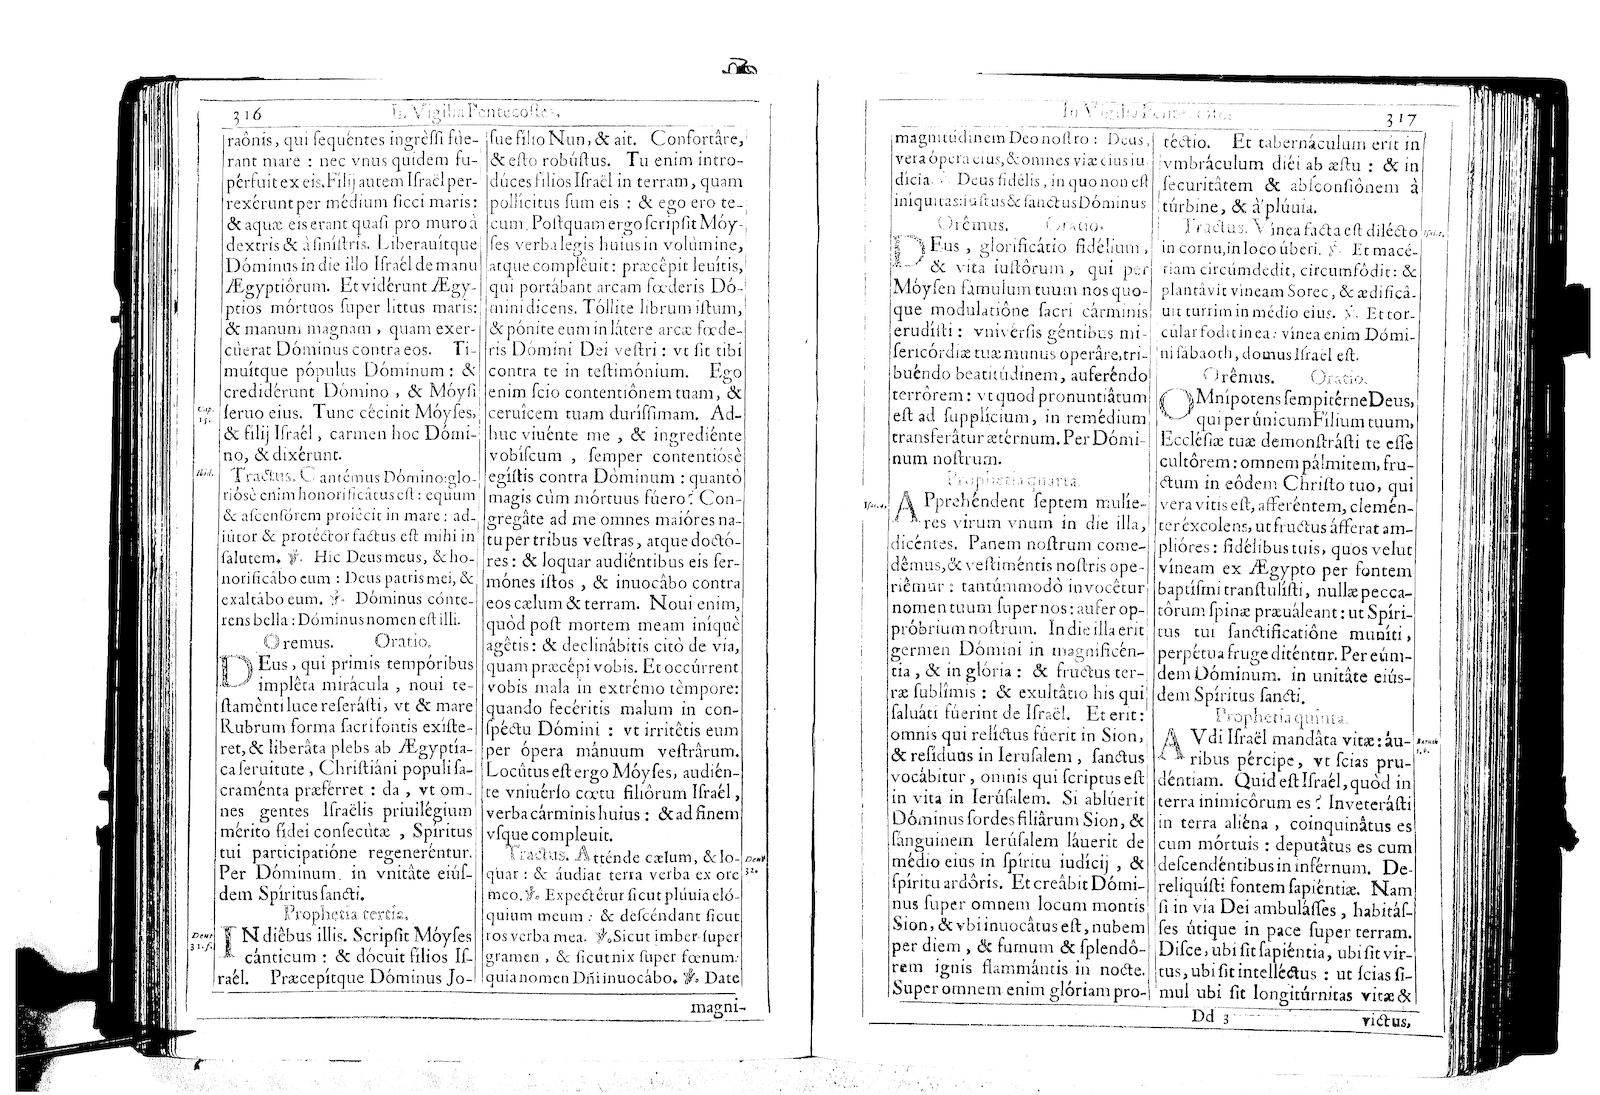 316
In Vigilia Pentecostes.
raônis, qui ſequéntes ingrèſſi fúe-
rant mare : nec vnus quidem ſu-
pérfuit ex eis. Fílij autem Iſraël per-
rexérunt per médium ſicci maris:
& aquæ eis erant quaſi pro muro à
dextris & à ſiniſtris. Liberauítque
Dóminus in die illo Iſraél de manu
Ægyptiórum. Et vidérunt Ægy-
ptios mórtuos ſuper littus maris:
& manum magnam , quam exer-
cúerat Dóminus contra eos. Ti-
muítque pópulus Dóminum : &
credidérunt Dómino , & Móyſi
ſeruo eius. Tunc cécinit Móyſes,
& filij Iſraél , carmen hoc Dómi-
no, & dixérunt.
Cap. 15.
Ibid.
Tractus. Cantémus Dómino: glo-
riósè enim honorificâtus eſt : equum
& aſcenſórem proiécit in mare : ad-
iútor & protéctor factus eſt mihi in
ſalutem. ℣. Hic Deus meus, & ho-
norificábo eum : Deus patris mei, &
exaltábo eum. ℣. Dóminus cónte-
rens bella : Dóminus nomen eſt illi.
Oremus. Oratio.
DEus , qui primis tempóribus
implêta mirácula , noui te-
ſtaménti luce reſeráſti, vt & mare
Rubrum forma ſacri fontis exíſte-
ret, & liberâta plebs ab Ægyptía-
ca ſeruitute , Chriſtiáni populi ſa-
craménta præférret : da , vt om-
nes gentes Iſraëlis priuilégium
mérito fídei conſecùtæ , Spíritus
tui participatióne regeneréntur.
Per Dóminum. in vnitâte eiúſ-
dem Spíritus ſancti.
Prophetia tertia.
Deut 31. f.
IN diêbus illis. Scripſit Móyſes
cánticum : & dócuit fílios Iſ-
raél. Præcepítque Dóminus Jo-
ſue fílio Nun, & ait. Confortâre,
& eſto robúſtus. Tu enim intro-
dúces filios Iſraël in terram, quam
pollícitus ſum eis : & ego ero te-
cum. Poſtquam ergo ſcripſit Móy-
ſes verba legis huius in volúmine,
atque compleuit: præcêpit leuítis,
qui portábant arcam fœderis Dó-
mini dicens. Tóllite librum iſtum,
& pónite eum in látere arcæ fœde-
ris Dómini Dei veſtri : vt ſit tibi
contra te in teſtimónium. Ego
enim ſcio contentiônem tuam, &
ceruîcem tuam duríſſimam. Ad-
huc viuénte me , & ingrediénte
vobíſcum , ſemper contentiósè
egíſtis contra Dòminum : quantò
magis cùm mórtuus fúero? Con-
gregâte ad me omnes maióres na-
tu per tribus veſtras, atque doctó-
res : & loquar audiéntibus eis ſer-
mónes iſtos , & inuocâbo contra
eos cælum & terram. Noui enim,
quòd poſt mortem meam iníquè
agêtis: & declinâbitis citò de via,
quam præcépi vobis. Et occúrrent
vobis mala in extrémo tèmpore:
quando fecéritis malum in con-
ſpéctu Dómini : vt irritêtis eum
per ópera mánuum veſtrârum.
Locûtus eſt ergo Móyſes, audién-
te vniuérſo cœtu filiôrum Iſraél ,
verba cárminis huius : & ad finem
vſque compleuit.
Deut 32.
Tractus. Atténde cælum, & lo-
quar : & áudiat terra verba ex ore
meo. ℣. Expectétur ſicut plúuia eló-
quium meum : & deſcéndant ſicut
ros verba mea. ℣. Sicut imber ſuper
gramen , & ſicut nix ſuper fœnum:
quia nomen Dñi inuocábo. ℣. Date
magni-
In Vigilia Pentecostes.
317
magnitúdinem Deo noſtro : Deus,
vera ópera eius, & omnes viæ eius iu
dícia. ℣. Deus fidélis , in quo non eſt
iníquitas: iuſtus & ſanctus Dóminus
Orêmus. Oratio.
DEus , glorificátio fidélium,
& vita iuſtôrum , qui per
Móyſen fámulum tuum nos quo-
que modulatiône ſacri cárminis
erudíſti : vnivérſis géntibus mi-
ſericórdiæ tuæ munus operâre, tri-
buéndo beatitúdinem, auferéndo
terrôrem : vt quod pronuntiâtum
eſt ad ſupplícium, in remédium
transferâtur ætérnum. Per Dómi-
num noſtrum.
Prophetia quarta.
Iſai. 4.
APprehéndent ſeptem mulíe-
res virum vnum in die illa,
dicéntes. Panem noſtrum come-
dêmus, & veſtiméntis noſtris ope-
riêmur : tantúmmodò invocêtur
nomen tuum ſuper nos : aufer op-
próbrium noſtrum. In die illa erit
germen Dómini in magnificén-
tia , & in glória : & fructus ter-
ræ ſublîmis : & exultâtio his qui
ſaluáti fúerint de Iſraël. Et erit :
omnis qui relíctus fúerit in Sion,
& reſíduus in Ieruſalem , ſanctus
vocábitur , omnis qui ſcriptus eſt
in vita in Ierúſalem. Si ablúerit
Dóminus ſordes filiârum Sion, &
ſánguinem Ierúſalem láuerit de
médio eius in ſpíritu iudícij , &
ſpíritu ardôris. Et creâbit Dómi-
nus ſuper omnem locum montis
Sion, & vbi inuocâtus eſt, nubem
per diem , & fumum & ſplendô-
rem ignis flammántis in nocte.
Super omnem enim glóriam pro-
téctio. Et tabernáculum erit in
vmbráculum diéi ab æſtu : & in
ſecuritâtem & abſconſiônem à
túrbine, & à plúuia.
Iſai. 5.
Tractus. Vínea facta eſt dilécto
in cornu, in loco úberi. ℣. Et macé-
riam circúmdedit, circumfódit : &
plantâvit víneam Sorec, & ædificâ-
uit turrim in médio eius. ℣. Et tor-
cular fodit in ea : vínea enim Dómi-
ni ſábaoth, domus Iſraël eſt.
Orêmus. Oratio.
OMnípotens ſempitérne Deus,
qui per únicum Fílium tuum,
Eccléſiæ tuæ demonſtráſti te eſſe
cultôrem : omnem pálmitem, fru-
ctum in eôdem Chriſto tuo, qui
vera vitis eſt, afferéntem, clemén-
ter éxcolens, ut fructus áfferat am-
plióres : fidélibus tuis, quos velut
víneam ex Ægypto per fontem
baptíſmi tranſtulíſti, nullæ pecca-
tôrum ſpinæ præuáleant : ut Spíri-
tus tui ſanctificatiône muníti ,
perpétua fruge diténtur. Per eúm-
dem Dóminum. in unitâte eiúſ-
dem Spíritus ſancti.
Prophetia quinta.
Baruch 3. b.
AVdi Iſraël mandâta vitæ : áu-
ribus pércipe, vt ſcias pru-
déntiam. Quid eſt Iſraél, quòd in
terra inimicôrum es ? Inveteráſti
in terra aliéna , coinquinâtus es
cum mórtuis : deputâtus es cum
deſcendéntibus in infèrnum. De-
reliquíſti fontem ſapiéntiæ. Nam
ſi in via Dei ambuláſſes , habitáſ-
ſes útique in pace ſuper terram.
Diſce, ubi ſit ſapiéntia, ubi ſit vir-
tus, ubi ſit intelléctus : ut ſcias ſi-
mul ubi ſit longitúrnitas vitæ &
Dd 3
victus,